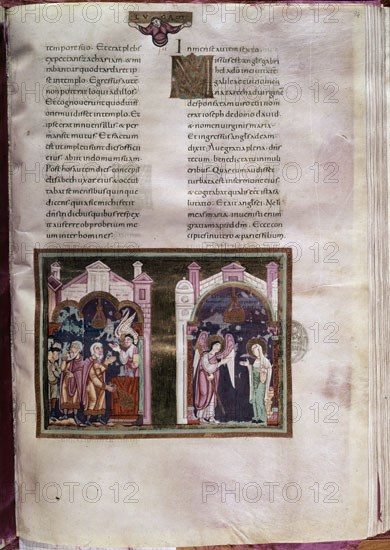 LVCAS
tempore suo. Et erat plebs
expectans zachariam & mi
rabantur quod tardaret ip
se in templo. Egressus autem
non poterat loqui ad illos.
Et cognoverunt quod uisi
onem uidisset in templo. Et
ipse erat innuens illis &
mansit mutus. Et factum
est ut impleti sunt dies officii
eius abiit in domum suam.
Post hos autem dies concepit
elisabeth uxor eius & occul
tabat se mensibus quinque
dicens quia sic mihi fecit
dns in diebus quibus respexit
auferre obprobrium me
um inter homines.
In mense autem sexto
missus est angelus gabri
hel a deo in ciuitatem
galileae cui nomen
nazareth ad uirginem
desponsatam uiro cui nomen
erat ioseph de domo dauid
& nomen uirginis maria.
Et ingressus angelus ad eam
dixit. Aue gratia plena dns
tecum benedicta tu in muli
eribus. Quae cum audisset
turbata est in sermone eius
& cogitabat qualis esset ista salu
tatio. Et ait angelus ei. Ne ti
meas maria inuenisti enim
gratiam apud dm
PHOTO 12